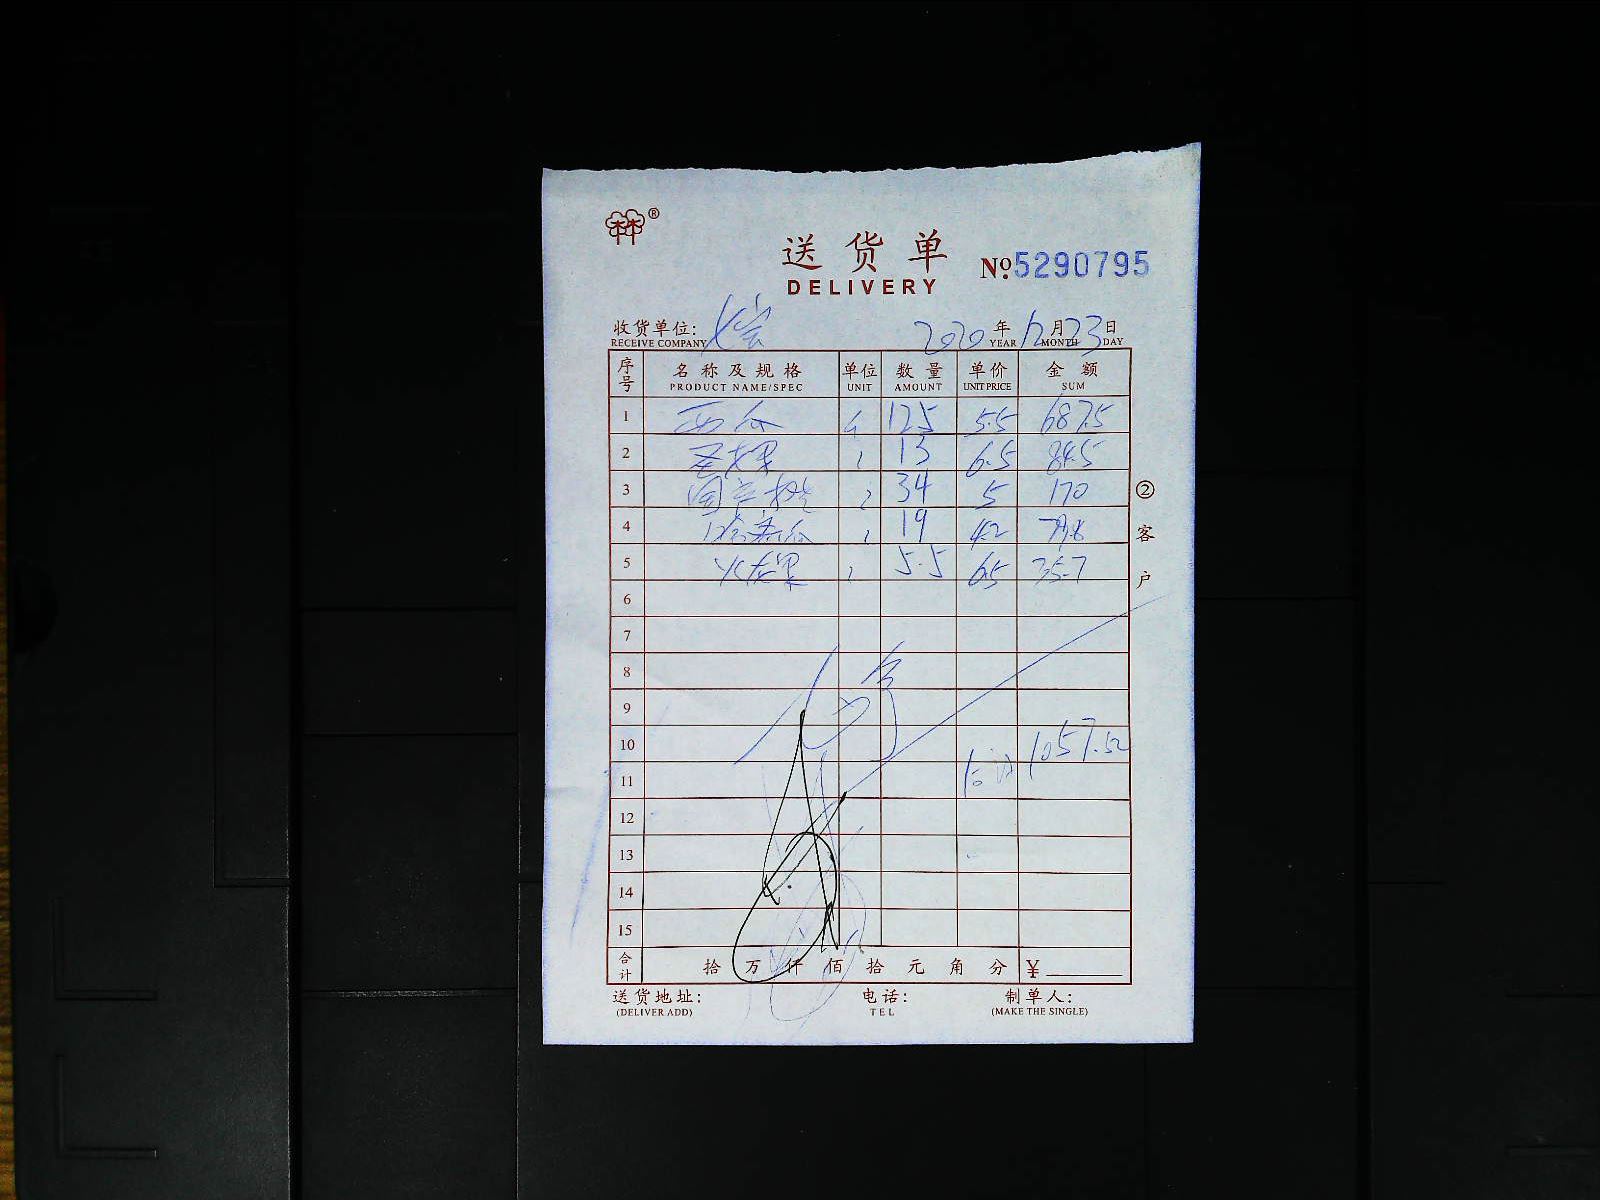 ®
送货单
DELIVERY
№ 5290795
收货单位: 2020年12月23日
RECEIVE COMPANY YEAR MONTH DAY
序号 名称及规格 单位 数量 单价 金额
PRODUCT NAME/SPEC UNIT AMOUNT UNIT PRICE SUM
1 西瓜 125 5.5 687.5
2 圣女果 13 6.5 84.5
3 国产提 34 5 170
4 哈密瓜 19 4.2 79.8
5 火龙果 5.5 6.5 35.7
6
7
8
9
10
合计 1057.52
11
12
13
14
15
合计 拾万仟佰拾元角分 ¥
送货地址: 电话: 制单人:
(DELIVER ADD) TEL (MAKE THE SINGLE)
②客户